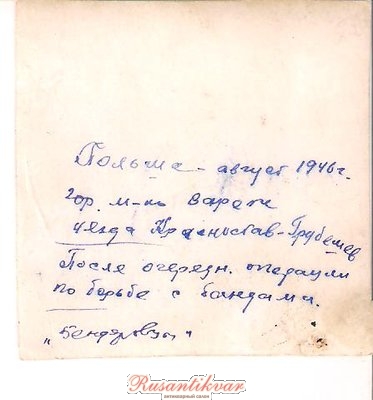 Польша - август 1946 г.
гор. м-ко Варенж
уезда Красностав-Грубешев
После очередн. операции
по борьбе с бандами.
„Бендеровцы"
Rusantikvar
антикварный салон